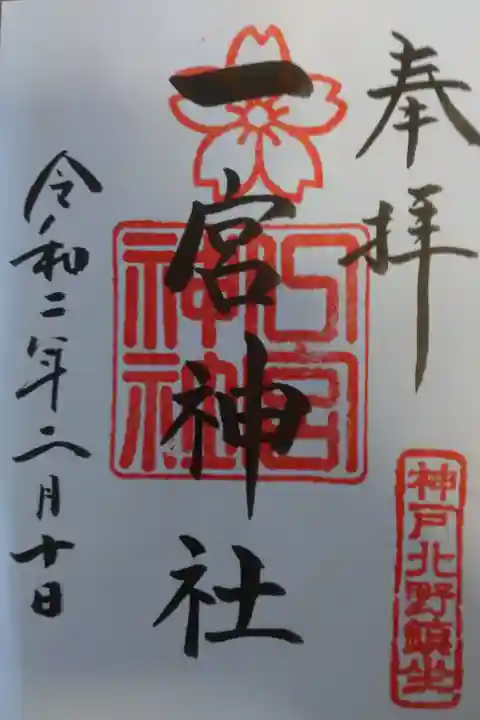 奉拝
神戸北野鎮坐
一宮神社
令和二年二月十日